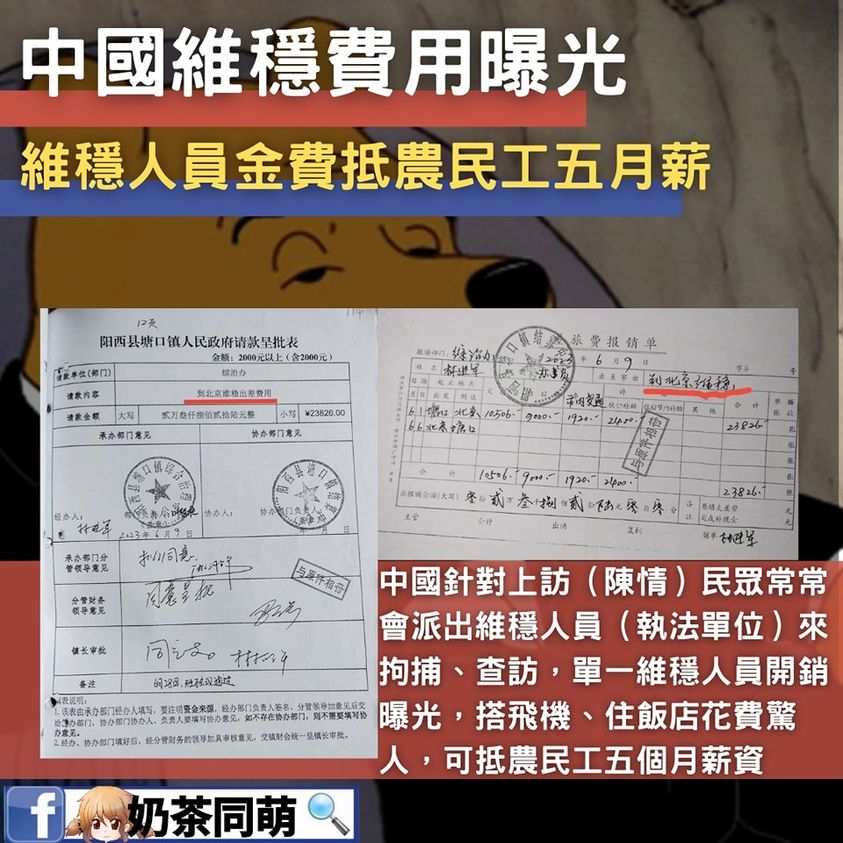 中國維穩費用曝光
維穩人員金費抵農民工五月薪
12页
阳西县塘口镇人民政府请款呈批表
金额：2000元以上（含2000元）
请款单位(部门) 综治办
请款内容 到北京维稳出差费用
请款金额 大写 贰万叁仟捌佰贰拾陆元整 小写 ¥23826.00
承办部门意见 协办部门意见
经办人：
2023年6月9日
承办部门分管领导意见
与原件相符
分管财务领导意见 同意呈批
镇长审批
备注
1.该表由承办部门经办人填写，要注明资金来源，经办部门负责人签名、分管领导加意见后交给协办部门，协办部门协办人、负责人要填写协办意见，如不存在协办部门，则不需要填写协办意见。
2.经办、协办部门填好后，经分管财务的领导加具审核意见，交镇财会统一呈镇长审批。
旅费报销单
报销部门：综治办 2023年6月9日
姓名 出差事由 到北京维稳
6.1 塘口 北京 10506.- 9000.- 1920.- 2400.- 23826.-
6.6 北京 塘口
与原件相符
合计 10506.- 9000.- 1920.- 2400.- 23826.-
主管 会计 出纳 复核 制单
中國針對上訪（陳情）民眾常常
會派出維穩人員（執法單位）來
拘捕、查訪，單一維穩人員開銷
曝光，搭飛機、住飯店花費驚
人，可抵農民工五個月薪資
f 奶茶同萌